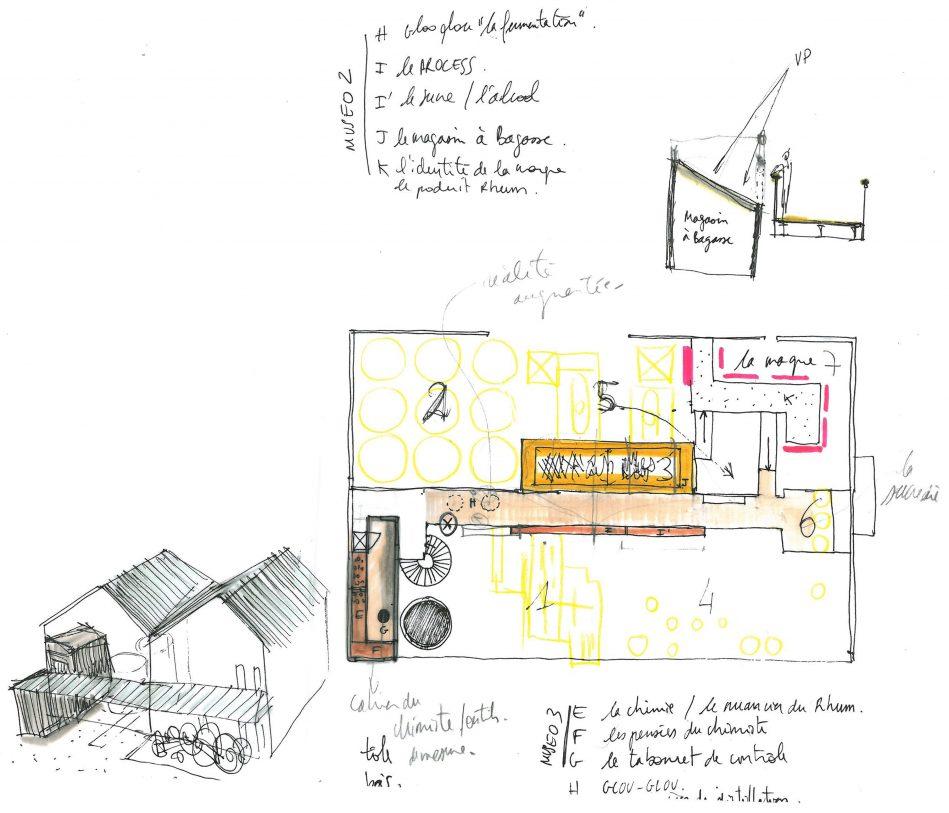 MUSEO 2
H Glou glou "la fermentation".
I le PROCESS.
I' le / l'alcool
J le magasin à Bagasse.
K l'identité de la marque
le produit Rhum.
VP
Magasin
à Bagasse
réalité
augmentée
2
5
la marque 7
K
3
J
H
6
la
sucrerie
I'
E
G
F
1
4
cahier du
chimiste / outils.
tôle
bois.
MUSEO 3
E la chimie / le nuancier du Rhum.
F les pensées du chimiste
G le tabouret de contrôle
H GLOU-GLOU.
distillation.